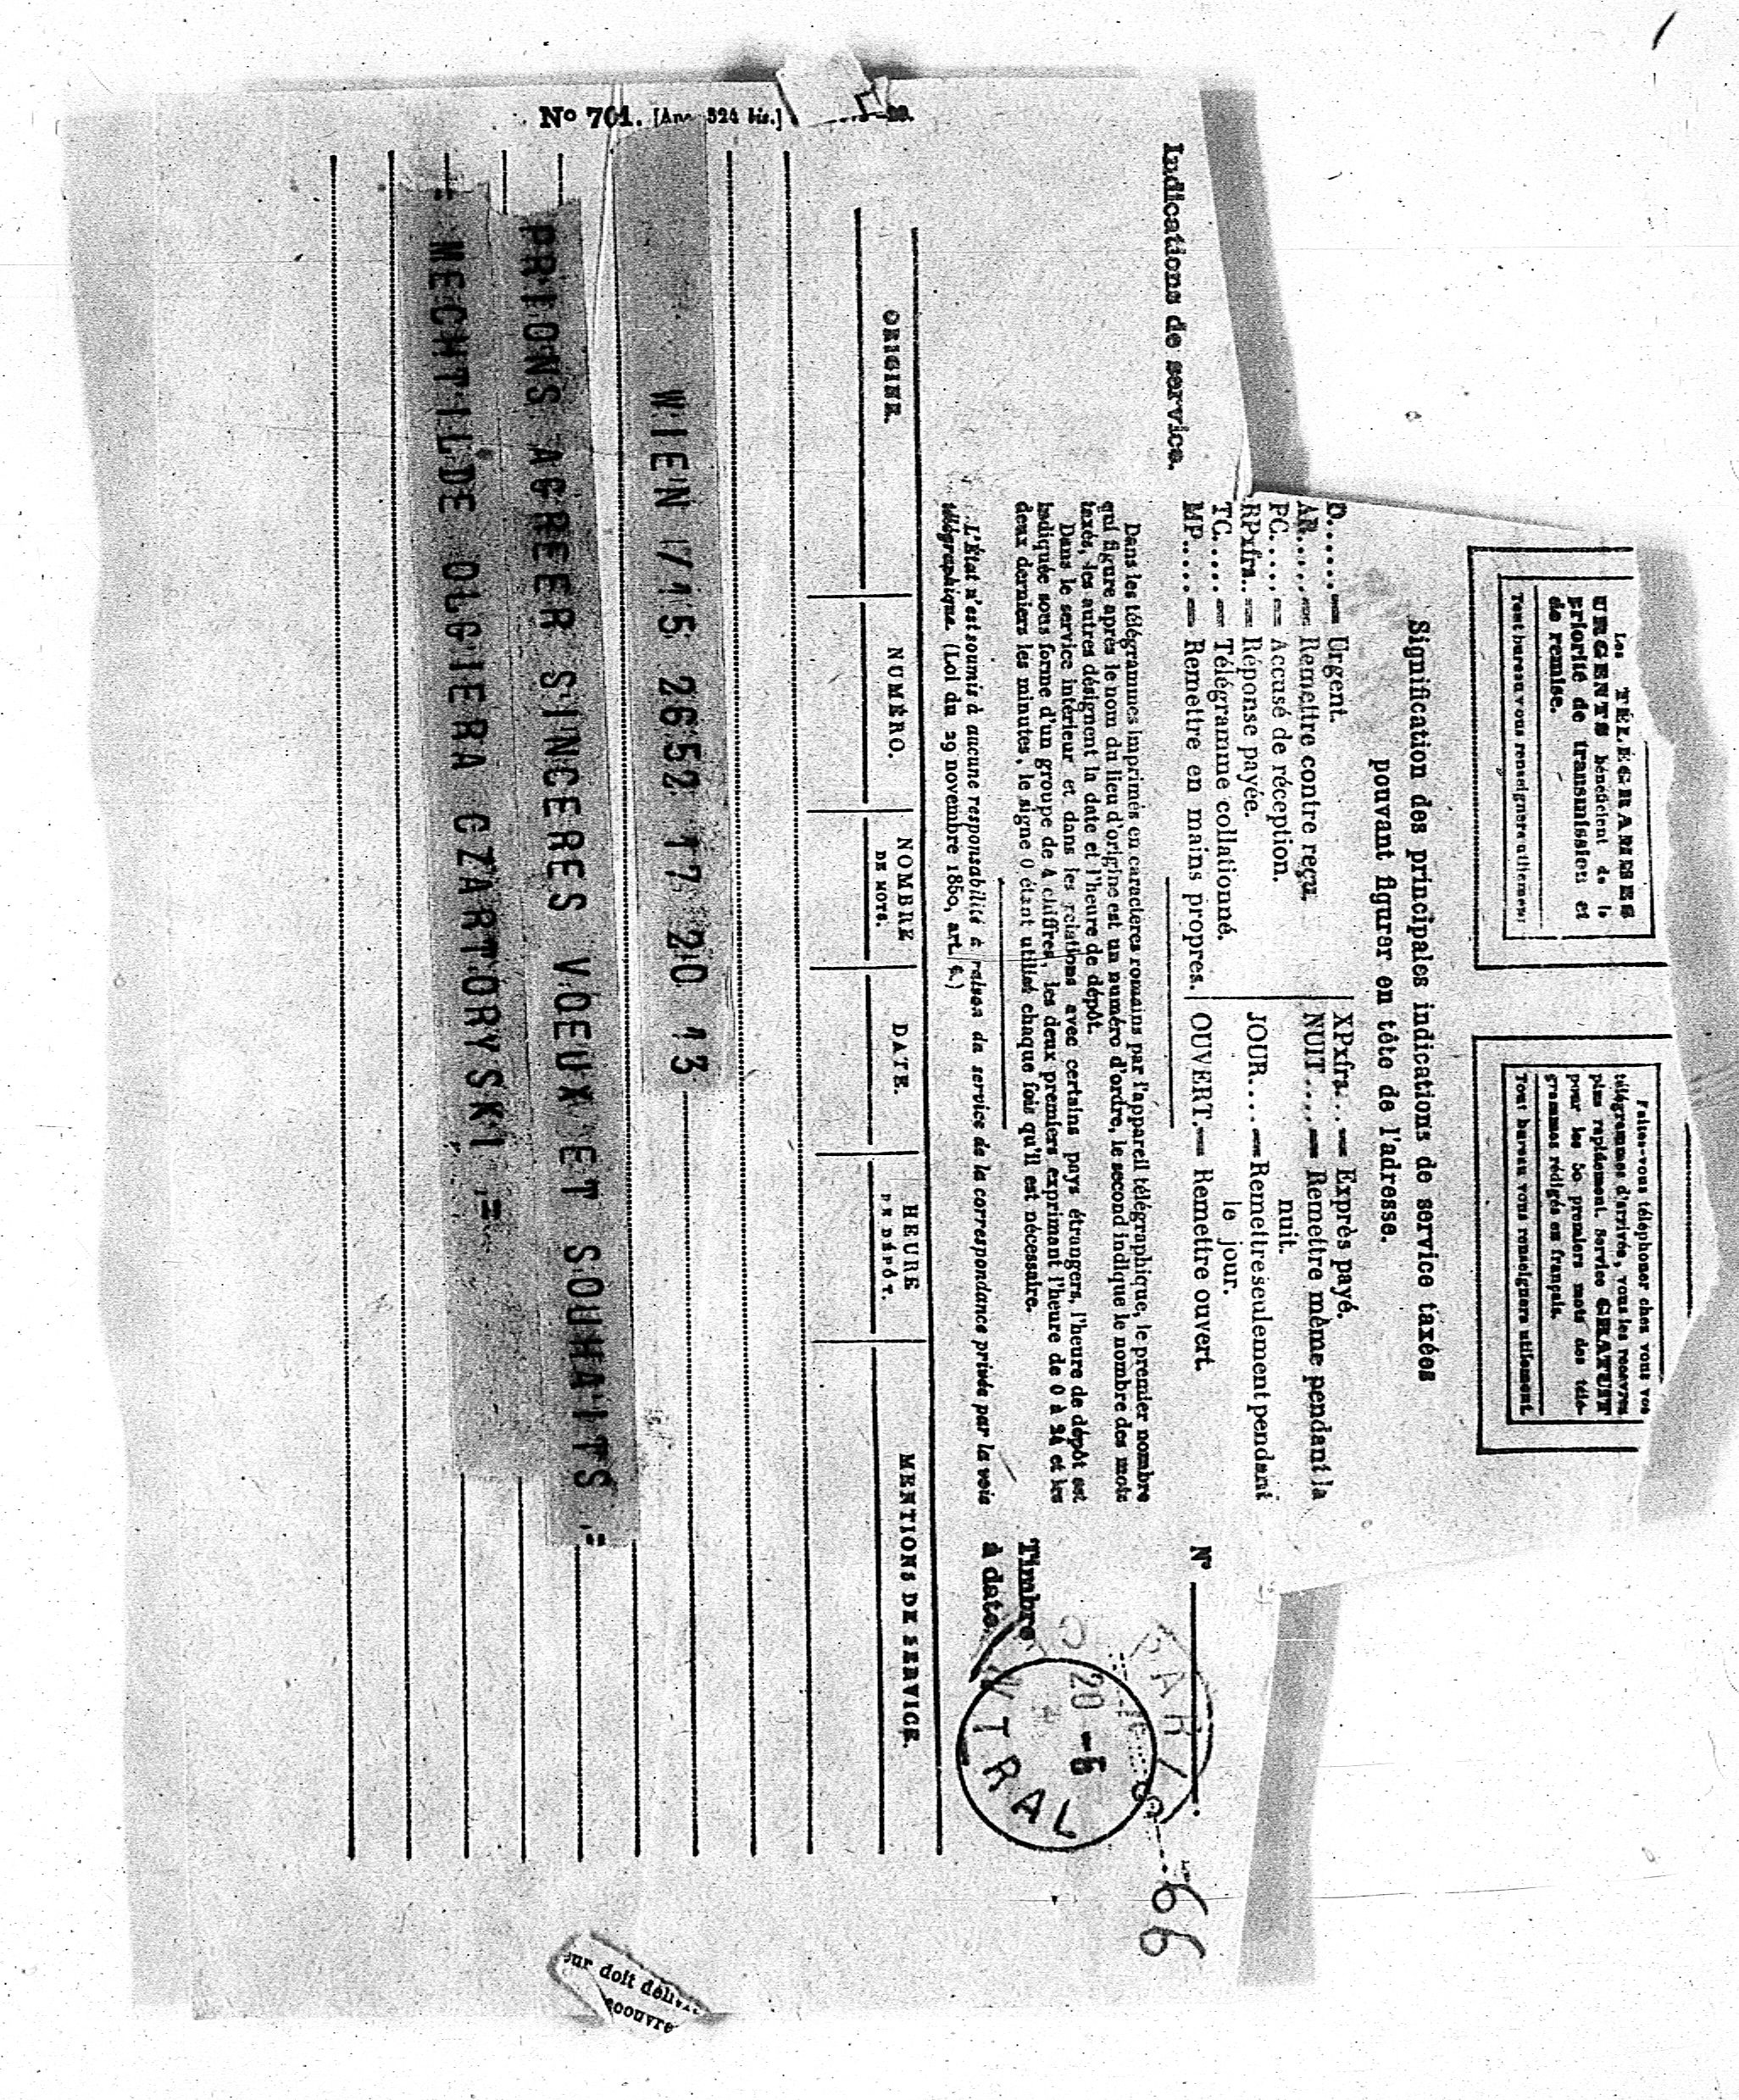 Les TÉLÉGRAMMES
URGENTS bénéficient de la
priorité de transmission et
de remise.
Tout bureau vous renseignera utilement
Faites-vous téléphoner chez vous vos
télégrammes d'arrivée, vous les recevrez
plus rapidement. Service GRATUIT
pour les 50 premiers mots des télé-
grammes rédigés en français.
Tout bureau vous renseignera utilement.
Signification des principales indications de service taxées
pouvant figurer en tête de l'adresse.
Indications de service.
D...... = Urgent.
AR..... = Remettre contre reçu.
PC..... = Accusé de réception.
RPxfrs.. = Réponse payée.
TC..... = Télégramme collationné.
MP..... = Remettre en mains propres.
XPxfrs... = Exprès payé.
NUIT.... = Remettre même pendant la
nuit.
JOUR.... = Remettre seulement pendant
le jour.
OUVERT. = Remettre ouvert.
Dans les télégrammes imprimés en caractères romains par l'appareil télégraphique, le premier nombre
qui figure après le nom du lieu d'origine est un numéro d'ordre, le second indique le nombre des mots
taxés, les autres désignent la date et l'heure de dépôt.
Dans le service intérieur et dans les relations avec certains pays étrangers, l'heure de dépôt est
indiquée sous forme d'un groupe de 4 chiffres, les deux premiers exprimant l'heure de 0 à 24 et les
deux derniers les minutes, le signe 0 étant utilisé chaque fois qu'il est nécessaire.
L'État n'est soumis à aucune responsabilité à raison du service de la correspondance privée par la voie
télégraphique. (Loi du 29 novembre 1850, art. 6.)
N°
Timbre
à date
PARIS
CENTRAL
20 -5
66
ORIGINE.
NUMÉRO.
NOMBRE
DE MOTS.
DATE.
HEURE
DE DÉPÔT.
MENTIONS DE SERVICE.
WIEN 1/15 2652 17 20 13
PRIONS AGREER SINCERES VOEUX ET SOUHAITS =
= MECHTILDE OLGIERA CZARTORYSKI =
N° 701. [Anc. 524 bis.]
eur doit déliv
recouvre